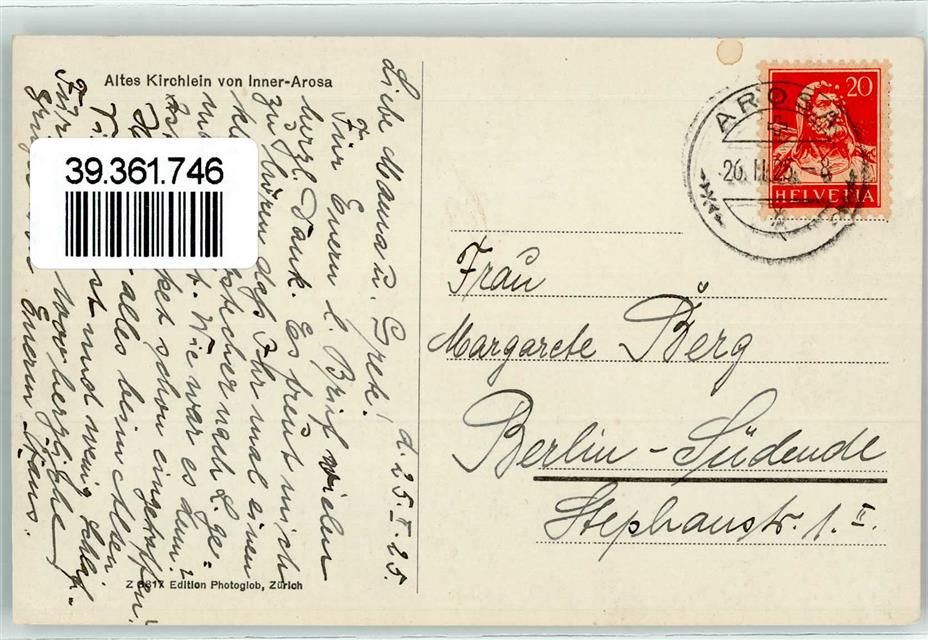 Altes Kirchlein von Inner-Arosa
39.361.746
Liebe Mama u. Grete! d. 25.I.25.
Für Euern l. Brief vielen
herzl. Dank. Es freut mich
zu hören, daß Ihr mal einen
nach L. ge-
Wie war es denn?
schon eingetroffen.
alles beim Alten.
st und wenig Schlaf.
herzliche
Euerm Hans.
Z 6817 Edition Photoglob, Zürich
AROSA
26.II.25.-8
20
HELVETIA
Frau
Margarete Berg
Berlin-Südende
Stephanstr. 1. II.